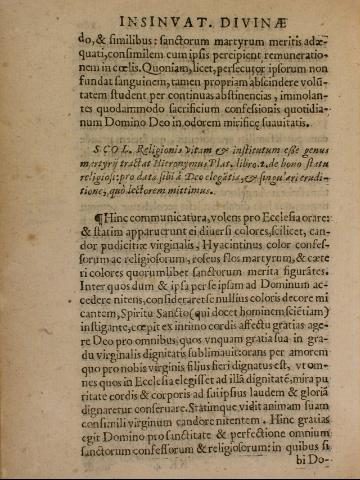 INSINVAT. DIVINÆ
do, & similibus: sanctorum martyrum meritis adæ-
quati, consimilem cum ipsis percipient remuneratio-
nem in cœlis. Quoniam, licet, persecutor ipsorum non
fundat sanguinem, tamen propriam abscindere volũ-
tatem student per continuas abstinencias, immolan-
tes quodammodo sacrificium confessionis quotidia-
num Domino Deo in odorem mirificę suauitatis.
SCOL. Religionis vitam & institutum esse genus
martyrij tractat Hieronymus Plat. libro.2. de bono statu
religiosi: pro data sibi à Deo elegãtia, & singulari erudi-
tione, quò lectorem mittimus.
¶Hinc communicatura, volens pro Ecclesia orare:
& statim apparuerunt ei diuersi colores, scilicet, can-
dor pudicitiæ virginalis, Hyacintinus color confes-
sorum ac religiosorum, roseus flos martyrum, & cæte
ri colores quorumlibet sanctorum merita figurãtes.
Inter quos dum & ipsa per se ipsam ad Dominum ac-
cedere nitens, consideraret se nullius coloris decore mi
cantem, Spiritu Sancto (qui docet hominem sciẽtiam)
instigante, cœpit ex intimo cordis affectu gratias age-
re Deo pro omnibus, quos vnquam gratia sua in gra-
du virginalis dignitatis sublimauit: orans per amorem
quo pro nobis virginis filius fieri dignatus est, vt om-
nes quos in Ecclesia elegisset ad illã dignitatẽ, mira pu
ritate cordis & corporis ad sui ipsius laudem & gloriã
dignaretur conseruare. Statimque vidit animam suam
consimili virginum candore nitentem. Hinc gratias
egit Domino pro sanctitate & perfectione omnium
sanctorum confessorum & religiosorum: in quibus si
bi Do-